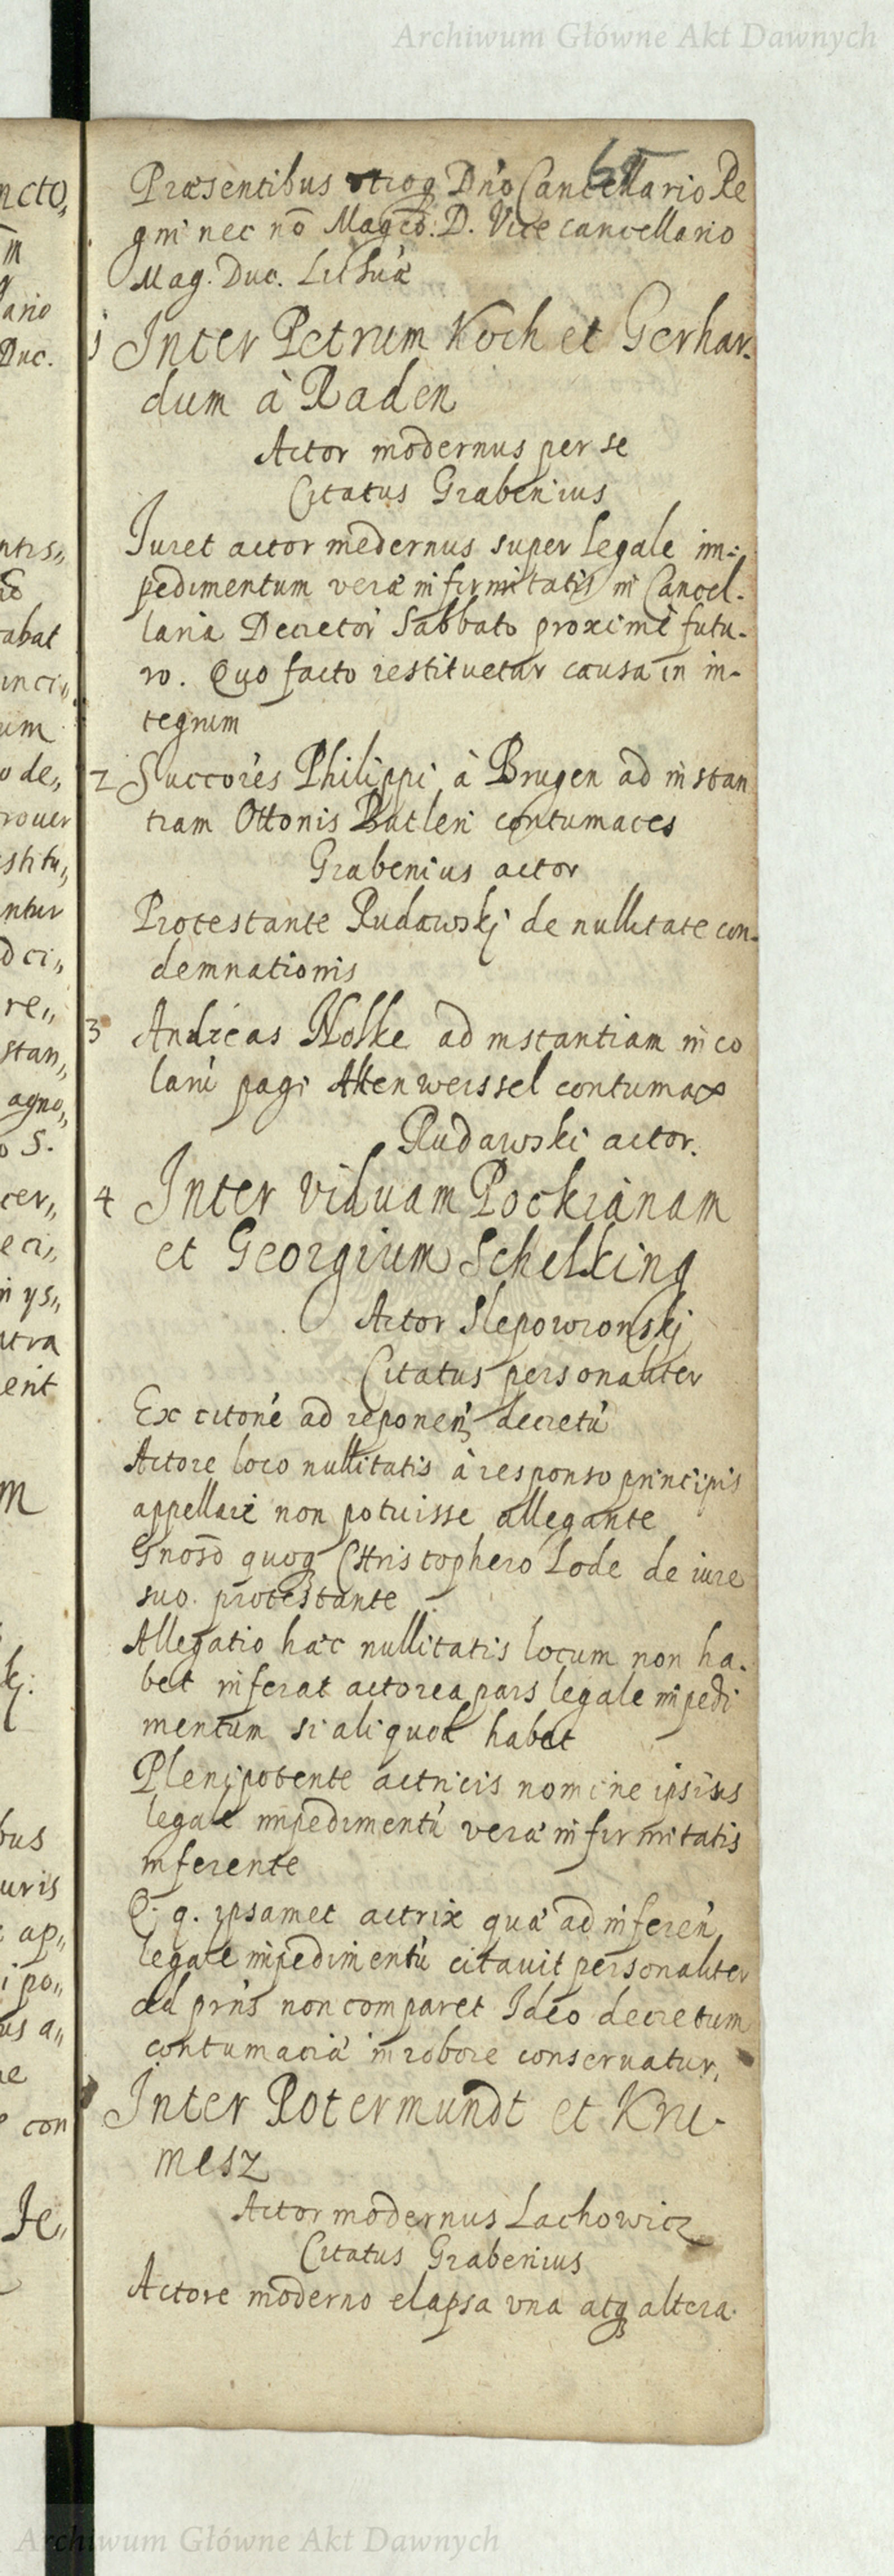 Archiwum Główne Akt Dawnych
65
Præsentibus utroq Dno Cancellario Re
gni nec nō Magco. D. Vice cancellario
Mag. Duc. Lithuæ
1 Inter Petrum Koch et Gerhar.
dum à Raden
Actor modernus per se
Citatus Grabenius
Iuret actor modernus super legale im-
pedimentum veræ infirmitatis in Cancel-
laria Decretor Sabbato proximè futu-
ro. Quo facto restituetur causa in in-
tegrum
2 Succores Philippi à Brugen ad instan
tiam Ottonis Butleri contumaces
Grabenius actor
Protestante Rudawskj de nullitate con-
demnationis
3 Andreas Nolke ad instantiam inco
larū pagi Altenweissel contumax
Rudawski actor.
4 Inter viduam Pockrianam
et Georgium Schelking
Actor Slepowronskj
Citatus personaliter
Ex citone ad reponen decretū
Actore loco nullitatis à responso principis
appellari non potuisse allegante
Gnoso quoq Christophero Lode de iure
suo protestante
Allegatio hæc nullitatis locum non ha-
bet inferat actorea pars legale impedi
mentum si aliquod habet
Plenipotente actricis nomine ipsius
legale impedimentū veræ infirmitatis
inferente
Q. q. ipsamet actrix quæ ad inferen
legale impedimentū citauit personaliter
ad prns non comparet Ideo decretum
contumaciæ in robore conseruatur.
Inter Rotermundt et Kri-
mesz
Actor modernus Lachowicz
Citatus Grabenius
Actore moderno elapsa vna atq altera
Archiwum Główne Akt Dawnych